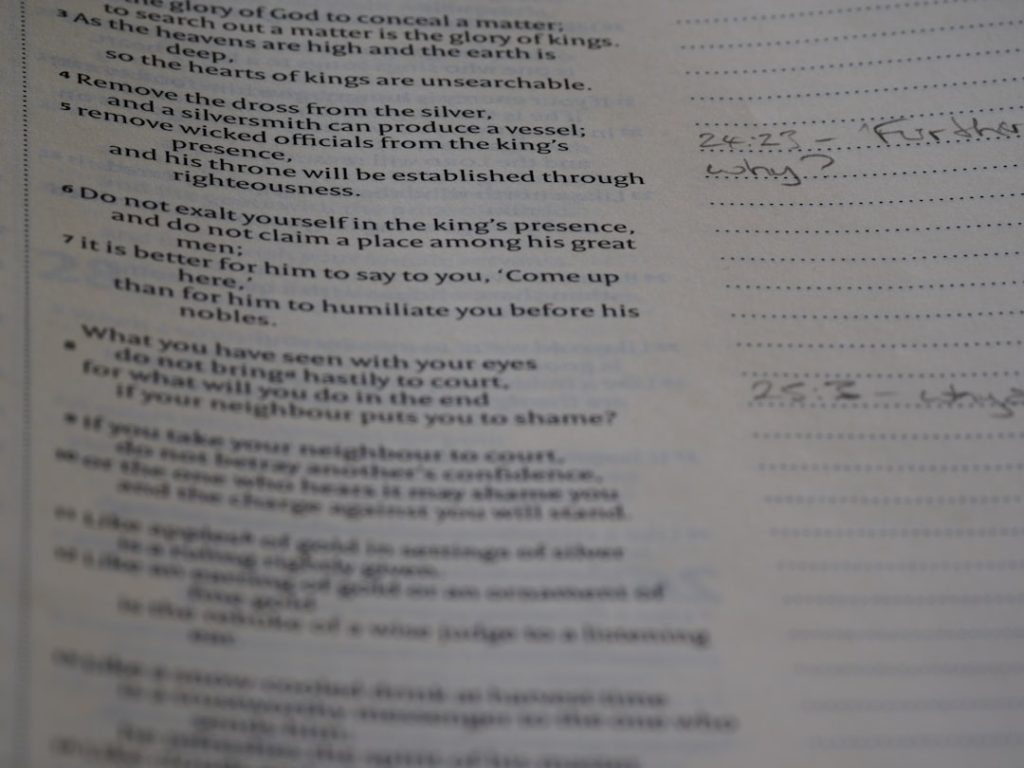 the glory of God to conceal a matter;
to search out a matter is the glory of kings.
3 As the heavens are high and the earth is
deep,
so the hearts of kings are unsearchable.
4 Remove the dross from the silver,
and a silversmith can produce a vessel;
5 remove wicked officials from the king's
presence,
and his throne will be established through
righteousness.
6 Do not exalt yourself in the king's presence,
and do not claim a place among his great
men;
7 it is better for him to say to you, 'Come up
here,'
than for him to humiliate you before his
nobles.
What you have seen with your eyes
8 do not bring hastily to court,
for what will you do in the end
if your neighbour puts you to shame?
9 If you take your neighbour to court,
do not betray another's confidence,
10 or the one who hears it may shame you
and the charge against you will stand.
11 Like apples of gold in settings of silver
is a ruling rightly given.
12 Like an earring of gold or an ornament of
fine gold
is the rebuke of a wise judge to a listening
ear.
24:23 – 'Further
why?
25:3 – why?